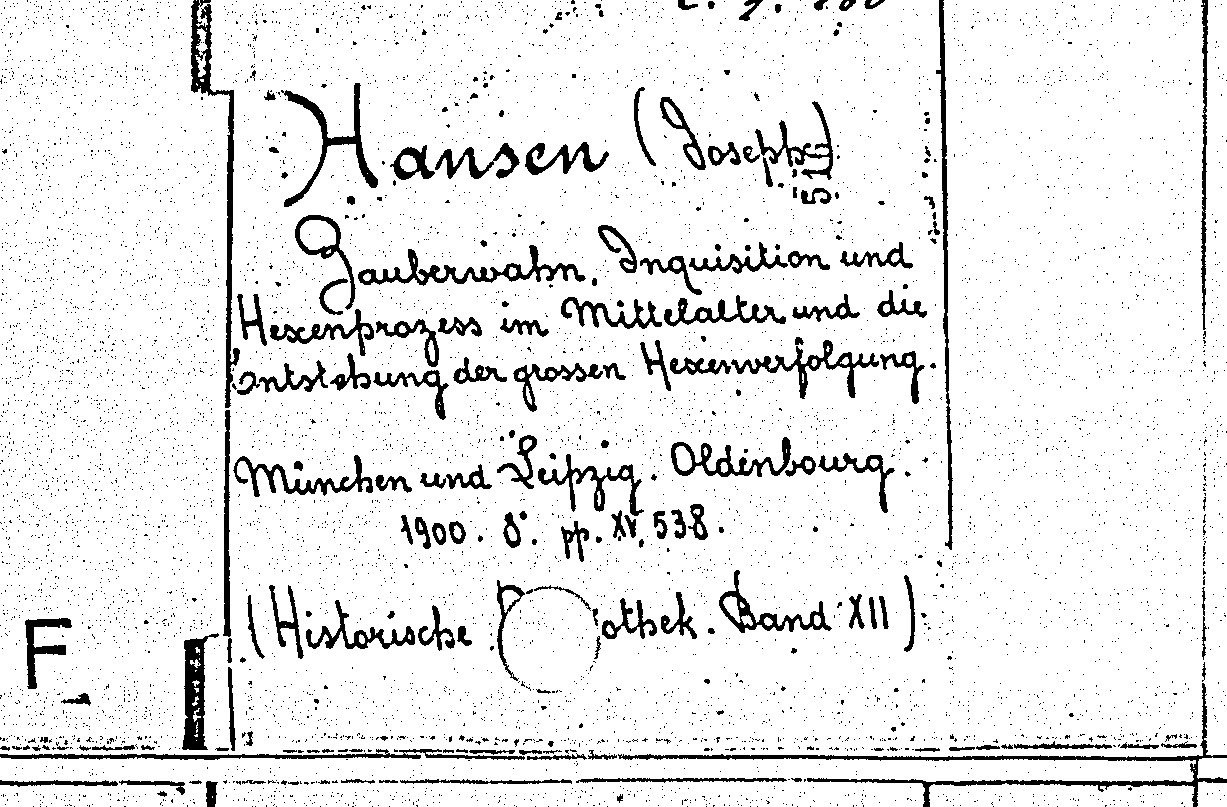 Hansen (Joseph)
Zauberwahn, Inquisition und
Hexenprozess im Mittelalter und die
Entstehung der grossen Hexenverfolgung.
München und Leipzig. Oldenbourg.
1900. 8°. pp. XV, 538.
(Historische othek. Band XII)
F